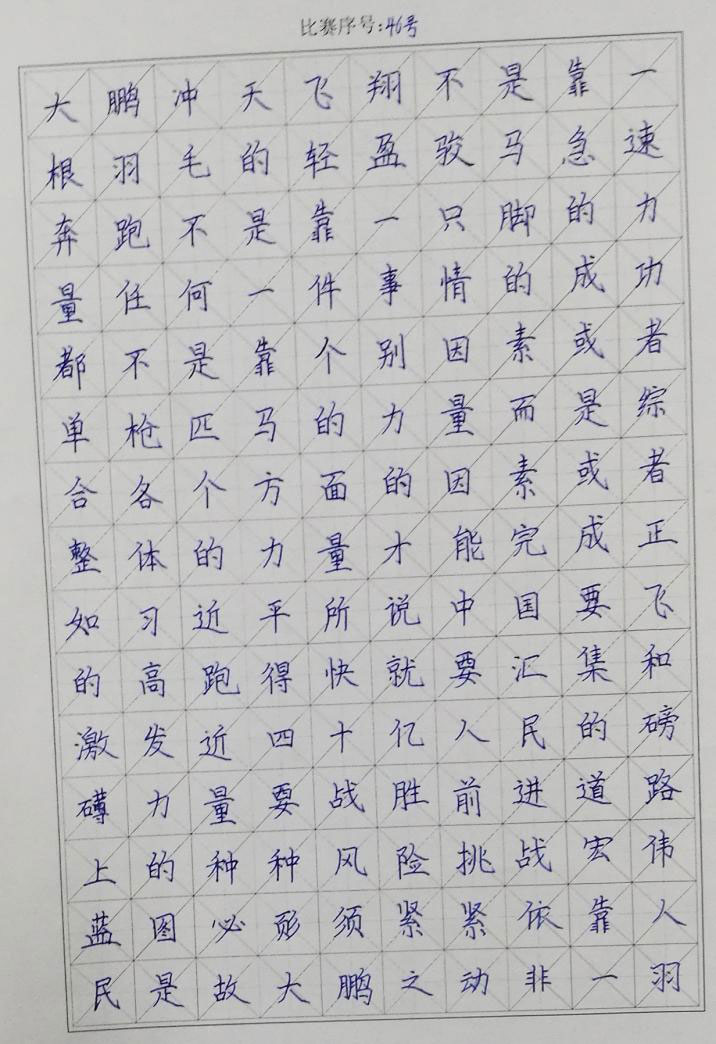 比赛序号:46号
大鹏冲天飞翔不是靠一
根羽毛的轻盈骏马急速
奔跑不是靠一只脚的力
量任何一件事情的成功
都不是靠个别因素或者
单枪匹马的力量而是综
合各个方面的因素或者
整体的力量才能完成正
如习近平所说中国要飞
的高跑得快就要汇集和
激发近四十亿人民的磅
礴力量要战胜前进道路
上的种种风险挑战宏伟
蓝图必形须紧紧依靠人
民是故大鹏之动非一羽